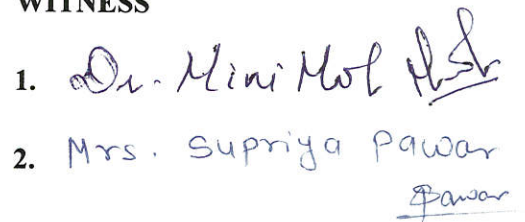 WITNESS
1. Dr. Mini Mol
2. Mrs. Supriya Pawar
Pawar